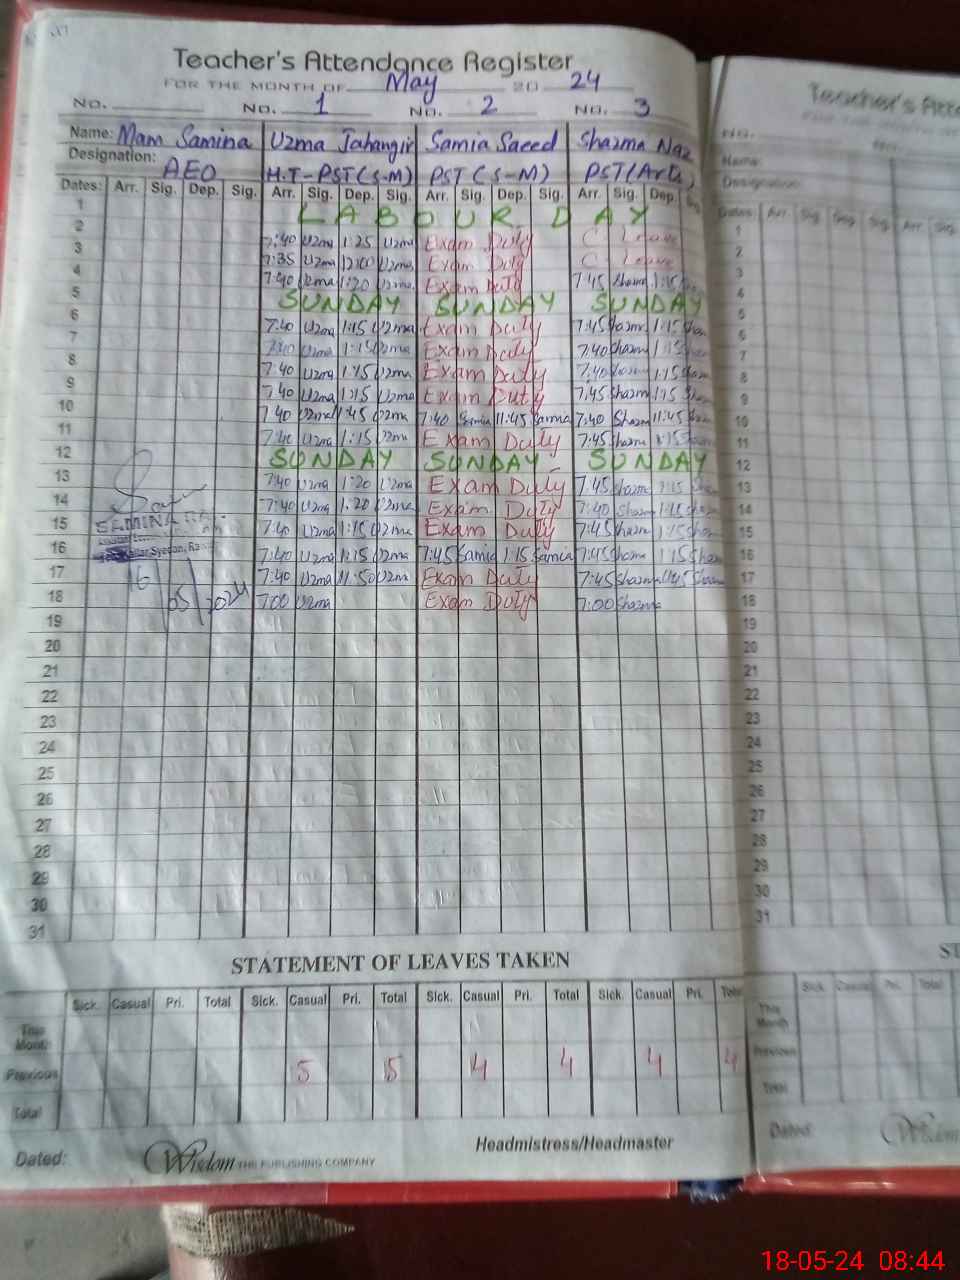 Teacher's Attendance Register
FOR THE MONTH OF May 20 24
No. No. 1 No. 2 No. 3
Name: Mam Samina Uzma Jahangir Samia Saeed Shazma Naz
Designation: AEO H.T-PST(S-M) PST(S-M) PST(Arts)
Dates: Arr. Sig. Dep. Sig. Arr. Sig. Dep. Sig. Arr. Sig. Dep. Sig. Arr. Sig. Dep. Sig.
1 LABOUR DAY
2 7:40 Uzma 1:25 Uzma Exam Duty C. Leave
3 7:35 Uzma 12:00 Uzma Exam Duty C. Leave
4 7:40 Uzma 1:20 Uzma Exam Duty 7:45 Shazma 1:15
5 SUNDAY SUNDAY SUNDAY
6 7:40 Uzma 1:15 Uzma Exam Duty 7:45 Shazma 1:15
7 7:40 Uzma 1:15 Uzma Exam Duty 7:40 Shazma 1:15
8 7:40 Uzma 1:15 Uzma Exam Duty 7:40 Shazma 1:15
9 7:40 Uzma 1:15 Uzma Exam Duty 7:45 Shazma 1:15
10 7:40 Uzma 11:45 Uzma 7:40 Samia 11:45 Samia 7:40 Shazm 11:45
11 7:40 Uzma 1:15 Uzma Exam Duty 7:45 Shazma 1:15
12 SUNDAY SUNDAY SUNDAY
13 7:40 Uzma 1:20 Uzma Exam Duty 7:45 Shazma 1:15
14 7:40 Uzma 1:20 Uzma Exam Duty 7:40 Shazma 1:15
15 SAMINA 7:40 Uzma 1:15 Uzma Exam Duty 7:45 Shazma 1:15
16 Syedan, 7:40 Uzma 1:15 Uzma 7:45 Samia 1:15 Samia 7:45 Shazma 1:15
17 16/05/2024 7:40 Uzma 11:50 Uzma Exam Duty 7:45 Shazma 11:45 Shazma
18 7:00 Uzma Exam Duty 7:00 Shazma
19
20
21
22
23
24
25
26
27
28
29
30
31
STATEMENT OF LEAVES TAKEN
Sick. Casual Pri. Total Sick. Casual Pri. Total Sick. Casual Pri. Total Sick. Casual Pri. Total
This Month
Previous 5 5 4 4 4 4
Total
Headmistress/Headmaster
Dated: Wisdom THE PUBLISHING COMPANY
Teacher's Atte
No.
Name:
Designation:
Dates: Arr. Sig. Dep. Sig. Arr. Sig.
1
2
3
4
5
6
7
8
9
10
11
12
13
14
15
16
17
18
19
20
21
22
23
24
25
26
27
28
29
30
31
ST
Sick. Casual Pri. Total Sick.
This Month
Previous
Total
Dated: Wisdom
18-05-24 08:44